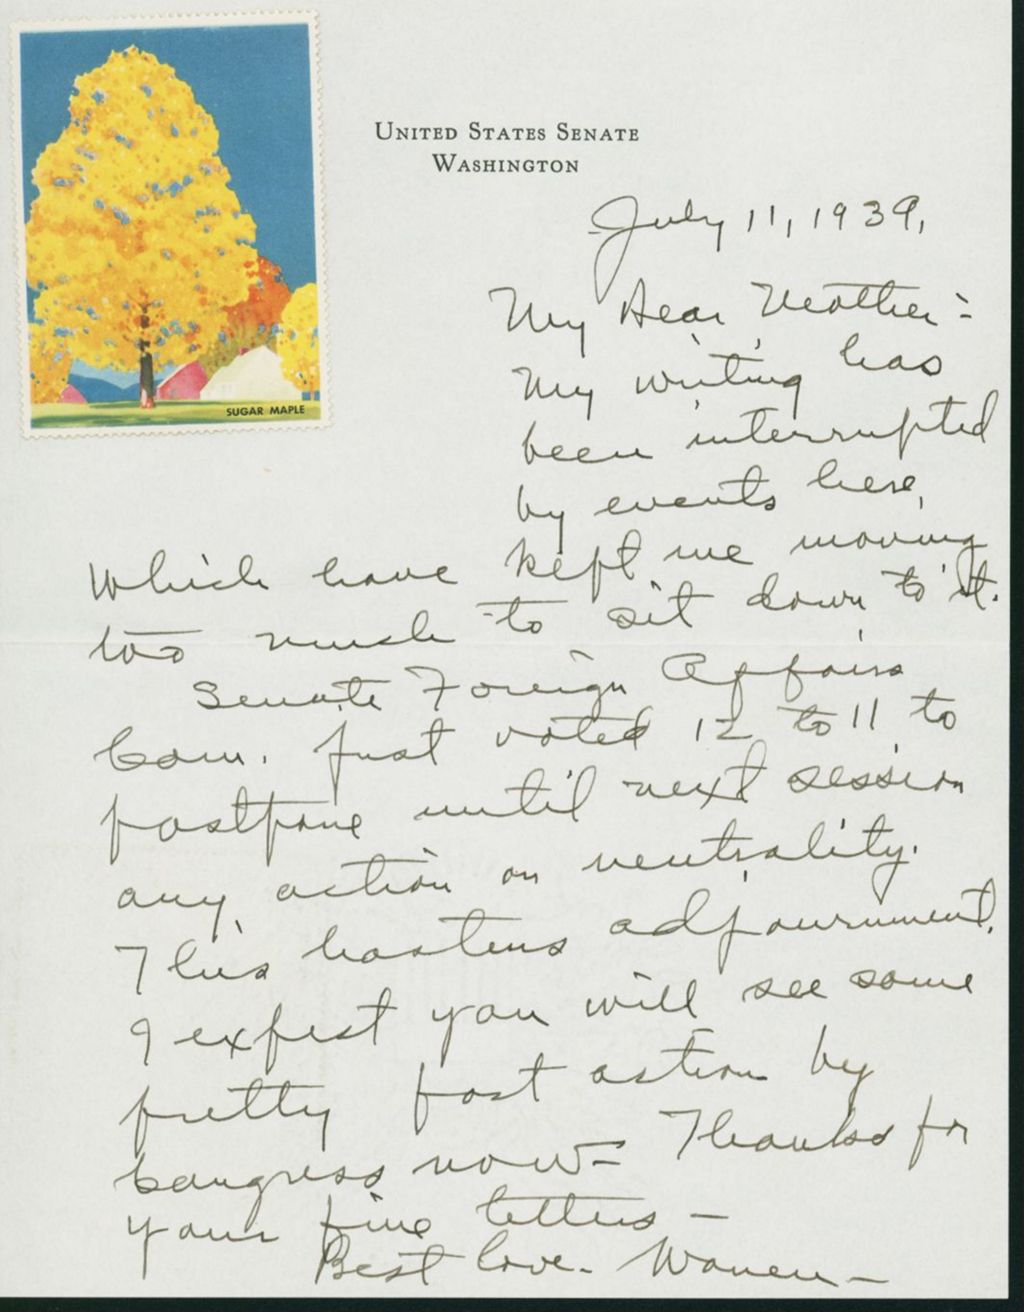 SUGAR MAPLE
UNITED STATES SENATE
WASHINGTON
July 11, 1939.
My Dear Mother:-
My writing has
been interrupted
by events here,
which have kept me moving
too much to sit down to it.
Senate Foreign Affairs
Com. just voted 12 to 11 to
postpone until next session
any action on neutrality.
This hastens adjournment.
I expect you will see some
pretty fast action by
Congress now - Thanks for
your fine letters -
Best love - Warren -